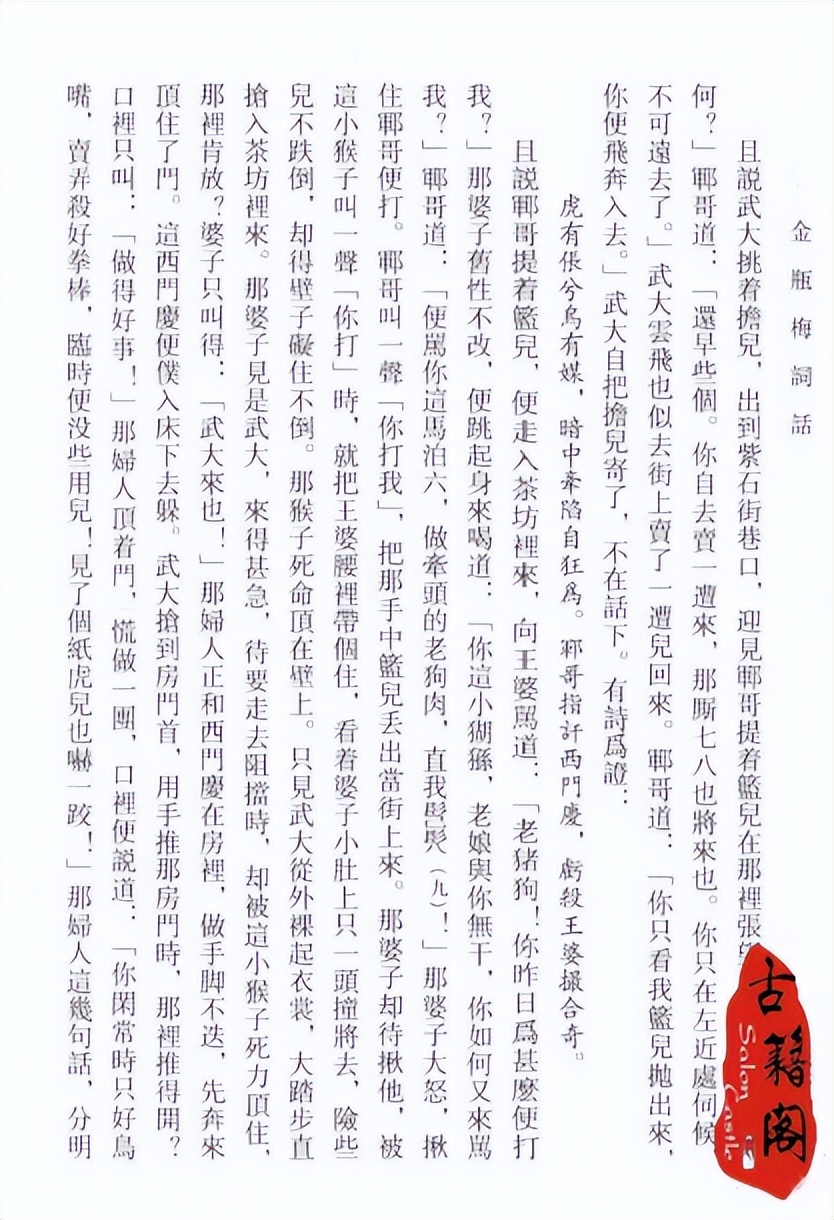 金瓶梅詞話
且説武大挑着擔兒，出到紫石街巷口，迎見鄆哥提着籃兒在那裡張
何？」鄆哥道：「還早些個。你自去賣一遭來，那厮七八也將來也。你只在左近處伺候
不可遠去了。」武大雲飛也似去街上賣了一遭兒回來。鄆哥道：「你只看我籃兒抛出來，
你便飛奔入去。」武大自把擔兒寄了，不在話下。有詩爲證：
虎有倀兮鳥有媒，暗中牽陷自狂爲。鄆哥指訐西門慶，虧殺王婆撮合奇。
且説鄆哥提着籃兒，便走入茶坊裡來，向王婆罵道：「老猪狗！你昨日爲甚麽便打
我？」那婆子舊性不改，便跳起身來喝道：「你這小猢猻，老娘與你無干，你如何又來罵
我？」鄆哥道：「便罵你這馬泊六，做牽頭的老狗肉，直我䯲（九）！」那婆子大怒，揪
住鄆哥便打。鄆哥叫一聲「你打我」，把那手中籃兒丢出當街上來。那婆子却待揪他，被
這小猴子叫一聲「你打」時，就把王婆腰裡帶個住，看着婆子小肚上只一頭撞將去，險些
兒不跌倒，却得壁子礙住不倒。那猴子死命頂在壁上。只見武大從外裸起衣裳，大踏步直
搶入茶坊裡來。那婆子見是武大，來得甚急，待要走去阻擋時，却被這小猴子死力頂住，
那裡肯放？婆子只叫得：「武大來也！」那婦人正和西門慶在房裡，做手脚不迭，先奔來
頂住了門。這西門慶便僕入床下去躲。武大搶到房門首，用手推那房門時，那裡推得開？
口裡只叫：「做得好事！」那婦人頂着門，慌做一團，口裡便説道：「你閑常時只好鳥
嘴，賣弄殺好拳棒，臨時便没些用兒！見了個紙虎兒也嚇一跤！」那婦人這幾句話，分明
古籍閣
Salon